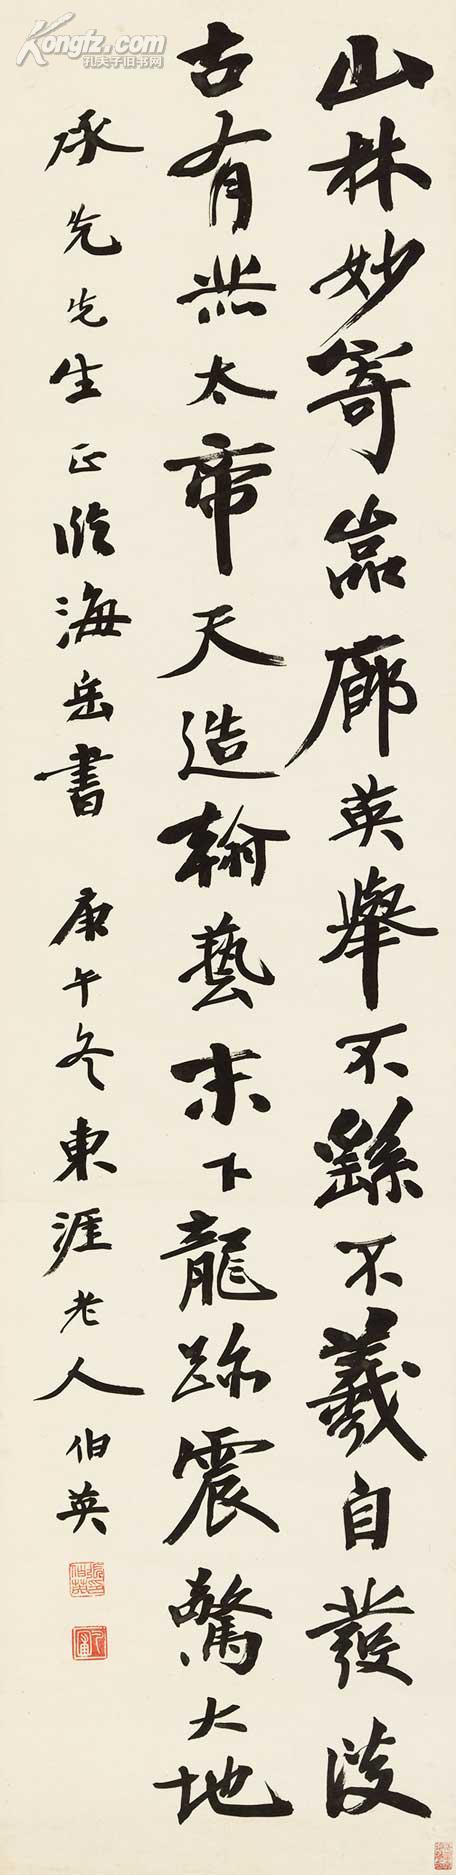 Kongfz.com
孔夫子旧书网
山林妙寄嵒廊英舉不繇不羲自發淡
古有赫太帝天造翰藝末下龍跡震驚大地
承先先生正臨海岳書 庚午冬東涯老人伯英
張伯英印
勺圃